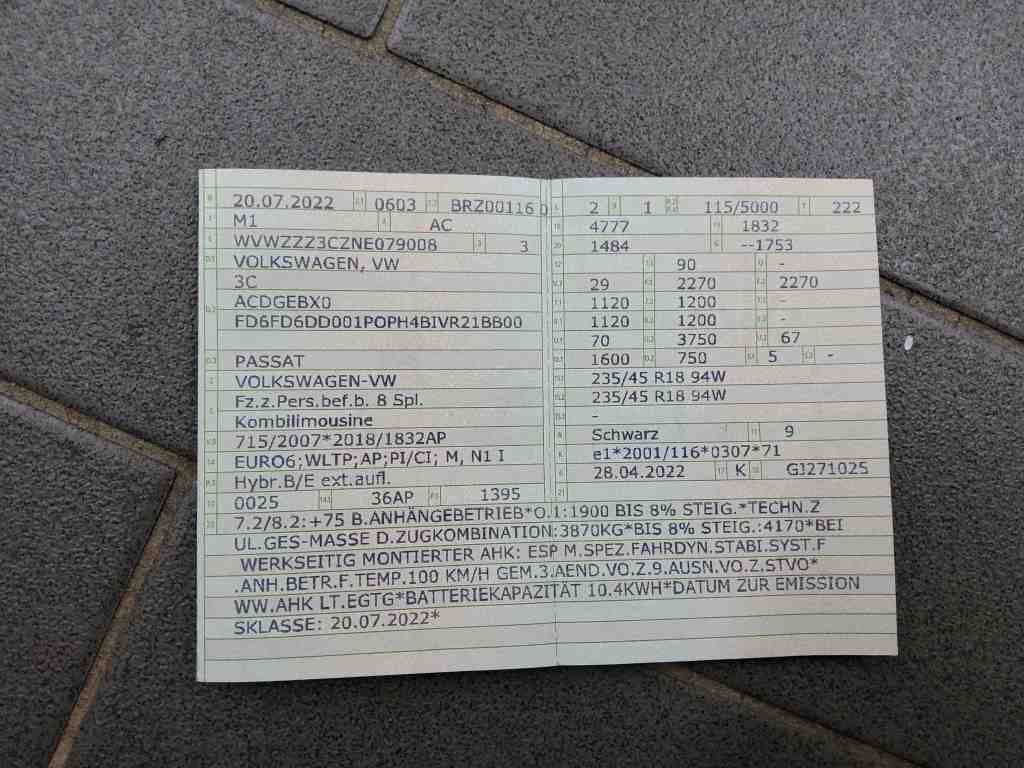 20.07.2022 0603 BRZ00116 0
M1 AC
WVWZZZ3CZNE079008 3
VOLKSWAGEN, VW
3C
ACDGEBX0
FD6FD6DD001POPH4BIVR21BB00
PASSAT
VOLKSWAGEN-VW
Fz.z.Pers.bef.b. 8 Spl.
Kombilimousine
715/2007*2018/1832AP
EURO6;WLTP;AP;PI/CI; M, N1 I
Hybr.B/E ext.aufl.
0025 36AP 1395
2 1 115/5000 222
4777 1832
1484 --1753
90 -
29 2270 2270
1120 1200 -
1120 1200 -
70 3750 67
1600 750 5 -
235/45 R18 94W
235/45 R18 94W
-
Schwarz 9
e1*2001/116*0307*71
28.04.2022 K GJ271025
21
7.2/8.2:+75 B.ANHÄNGEBETRIEB*O.1:1900 BIS 8% STEIG.*TECHN.Z
UL.GES-MASSE D.ZUGKOMBINATION:3870KG*BIS 8% STEIG.:4170*BEI
WERKSEITIG MONTIERTER AHK: ESP M.SPEZ.FAHRDYN.STABI.SYST.F
.ANH.BETR.F.TEMP.100 KM/H GEM.3.AEND.VO.Z.9.AUSN.VO.Z.STVO*
WW.AHK LT.EGTG*BATTERIEKAPAZITÄT 10.4KWH*DATUM ZUR EMISSION
SKLASSE: 20.07.2022*